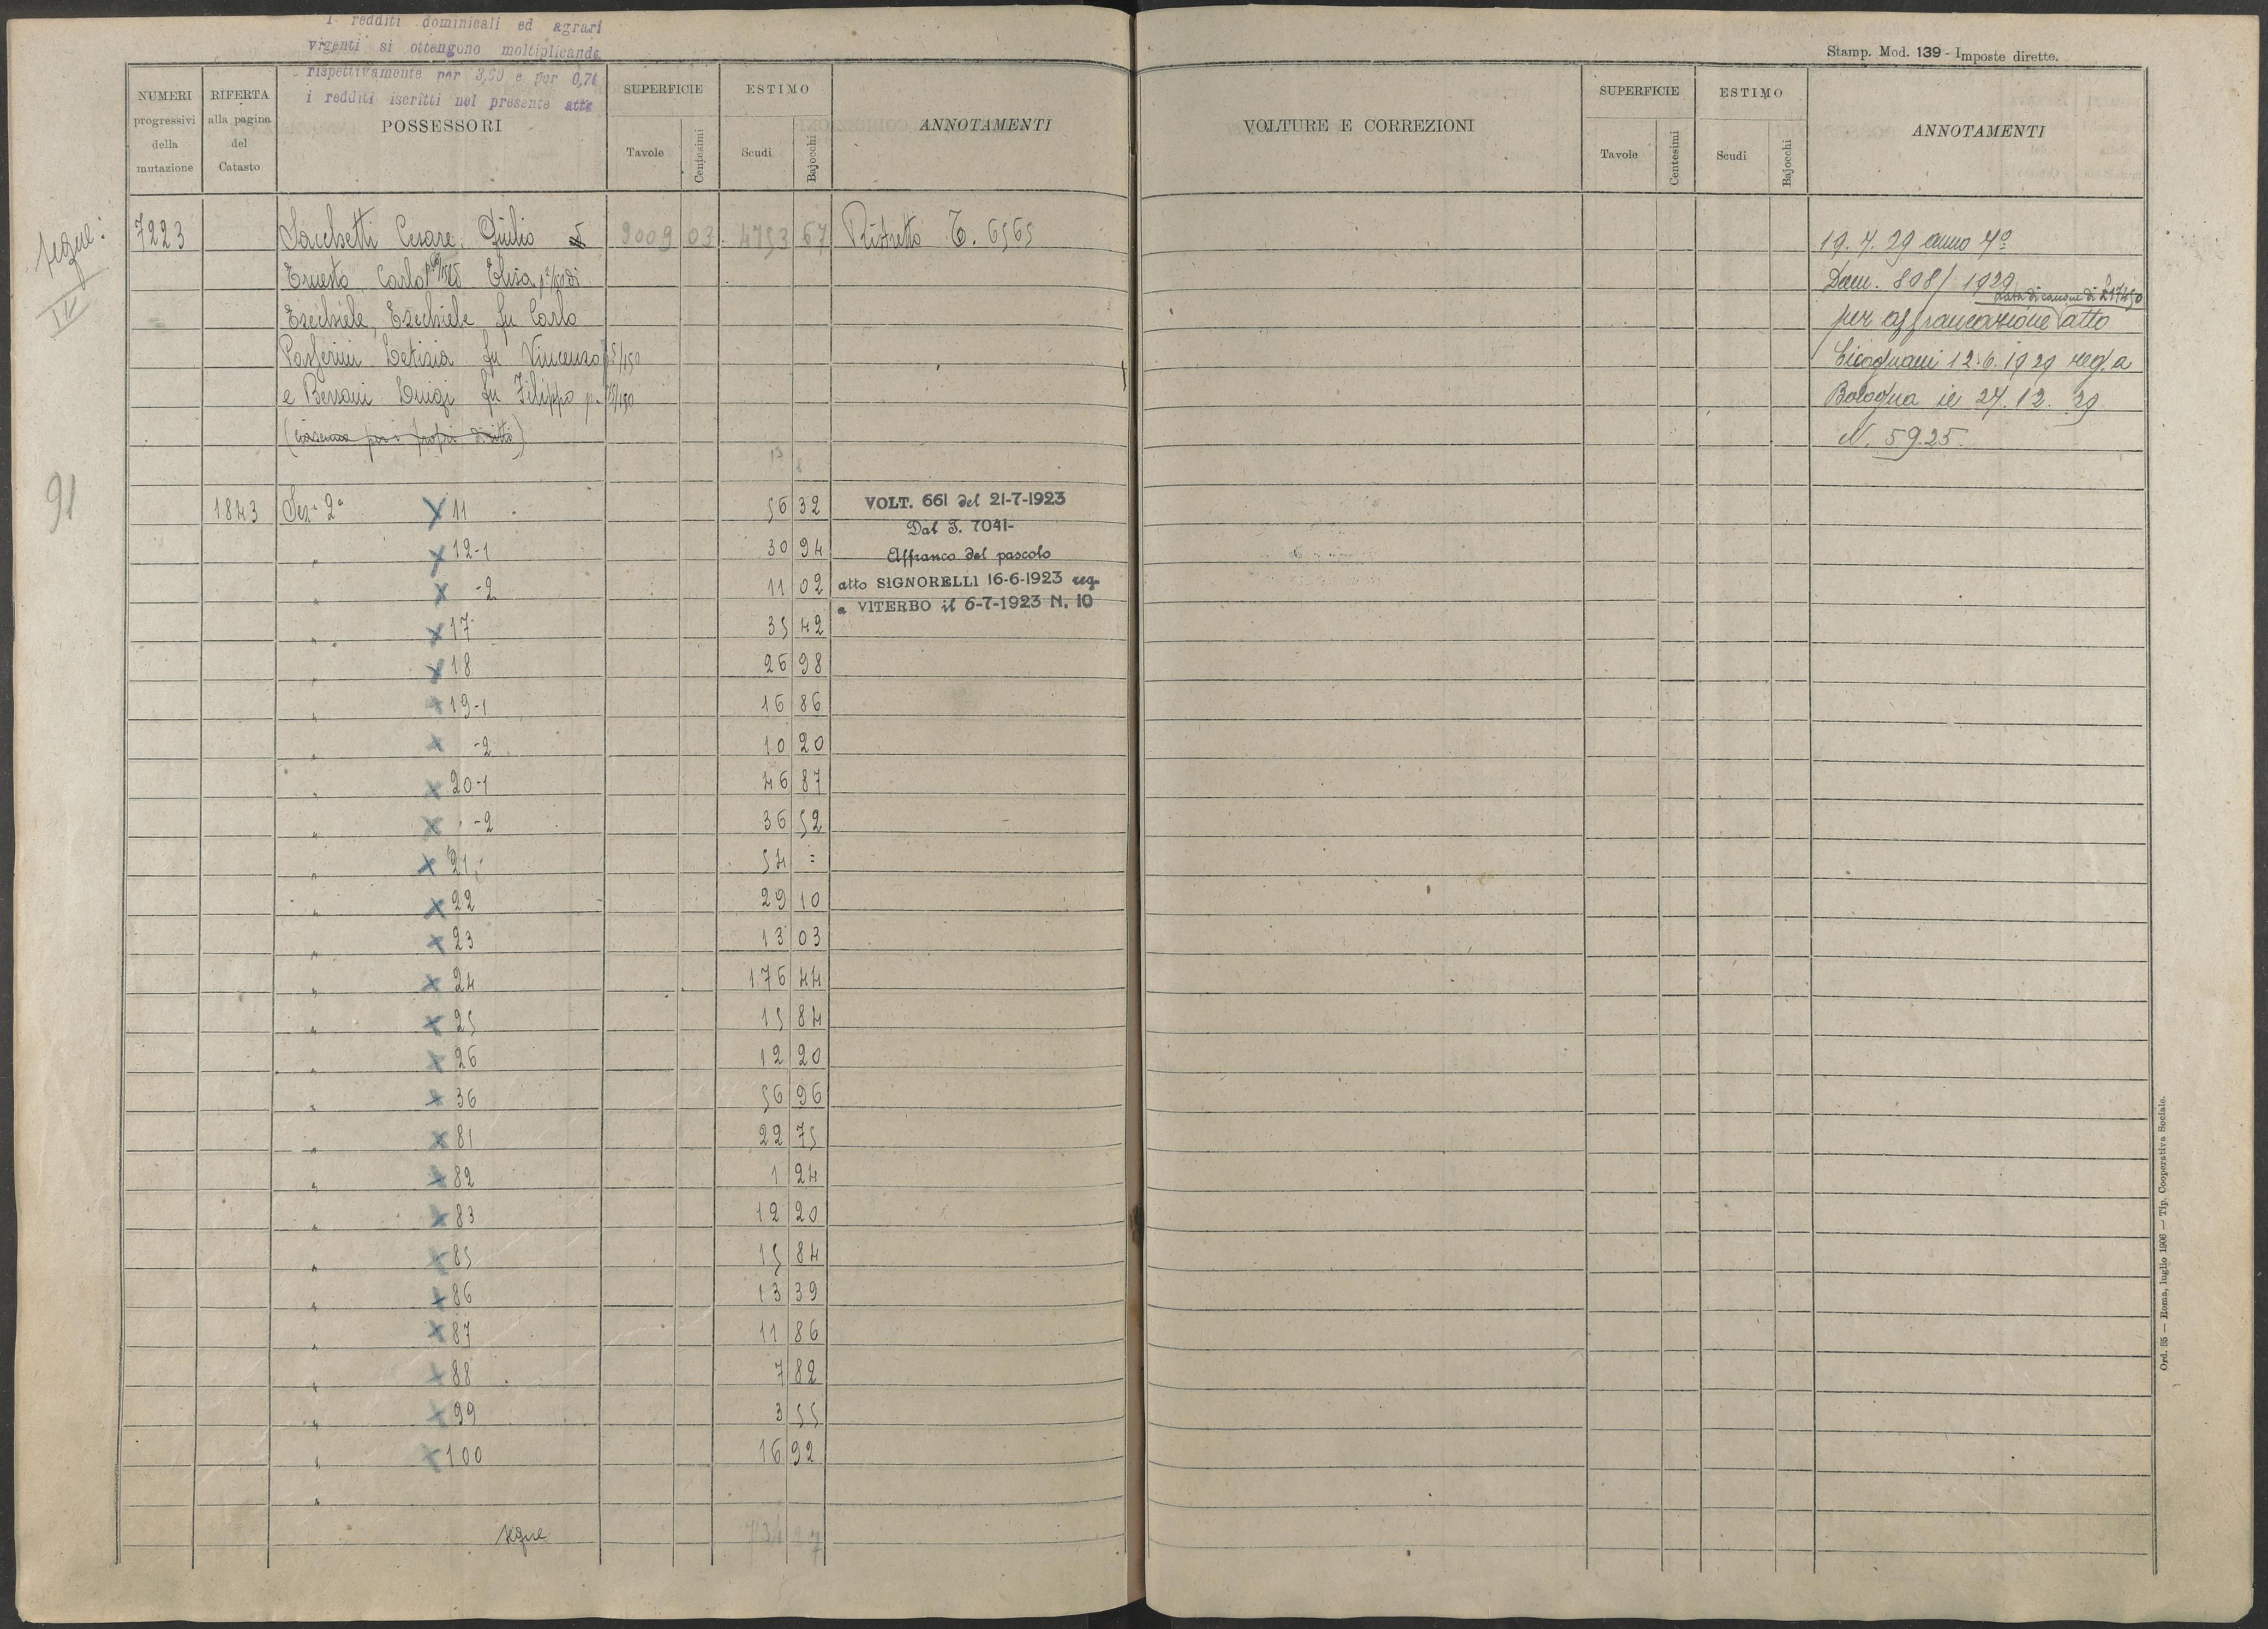 I redditi dominicali ed agrari
vigenti si ottengono moltiplicando
rispettivamente per 3,30 e per 0,70
i redditi iscritti nel presente atto
Stamp. Mod. 139 - Imposte dirette.
NUMERI progressivi della mutazione
RIFERTA alla pagina del Catasto
POSSESSORI
SUPERFICIE
Tavole
Centesimi
ESTIMO
Scudi
Bajocchi
ANNOTAMENTI
VOLTURE E CORREZIONI
SUPERFICIE
Tavole
Centesimi
ESTIMO
Scudi
Bajocchi
ANNOTAMENTI
segue:
IV
91
7223 Sacchetti Cesare, Giulio 2009 03 4753 67 Ristretto T. 6565
Ernesto, Carlo Elisa di
Ezechiele, Ezechiele fu Carlo
Passerini Letizia fu Vincenzo
e Bersani Luigi fu Filippo
(ciascuno per i propri diritti)
1843 Sez. 2ª 11 56 32
" 12-1 30 94
" -2 11 02
" 17 35 42
" 18 26 98
" 19-1 16 86
" -2 10 20
" 20-1 46 87
" -2 36 52
" 21 54 =
" 22 29 10
" 23 13 03
" 24 176 44
" 25 15 84
" 26 12 20
" 36 56 96
" 81 22 75
" 82 1 24
" 83 12 20
" 85 15 84
" 86 13 39
" 87 11 86
" 88 7 82
" 99 3 55
" 100 16 92
"
segue
VOLT. 661 del 21-7-1923
Dal T. 7041-
Affranco del pascolo
atto SIGNORELLI 16-6-1923 reg.
a VITERBO il 6-7-1923 N. 10
19. 7. 29 anno 7º
Dem. 808/1929
per affrancazione atto
12.6.1929 reg. a
Bologna il 27. 12. 29
N. 5925.
Ord. 85 — Roma, luglio 1906 — Tip. Cooperativa Sociale.